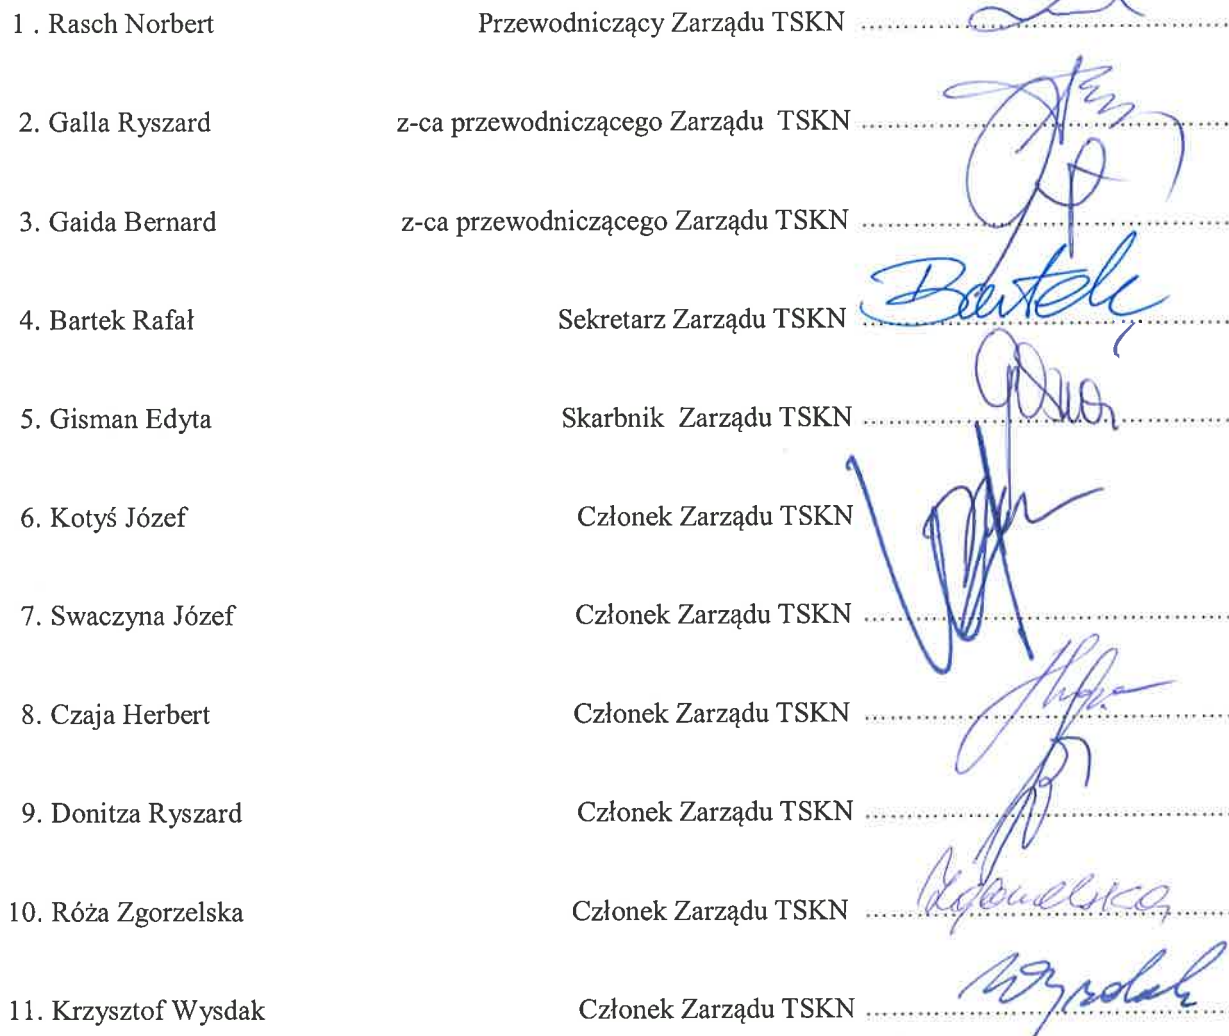 1 . Rasch Norbert Przewodniczący Zarządu TSKN
2. Galla Ryszard z-ca przewodniczącego Zarządu TSKN
3. Gaida Bernard z-ca przewodniczącego Zarządu TSKN
4. Bartek Rafał Sekretarz Zarządu TSKN Bartek
5. Gisman Edyta Skarbnik Zarządu TSKN
6. Kotyś Józef Członek Zarządu TSKN
7. Swaczyna Józef Członek Zarządu TSKN
8. Czaja Herbert Członek Zarządu TSKN
9. Donitza Ryszard Członek Zarządu TSKN
10. Róża Zgorzelska Członek Zarządu TSKN Zgorzelska
11. Krzysztof Wysdak Członek Zarządu TSKN Wysdak